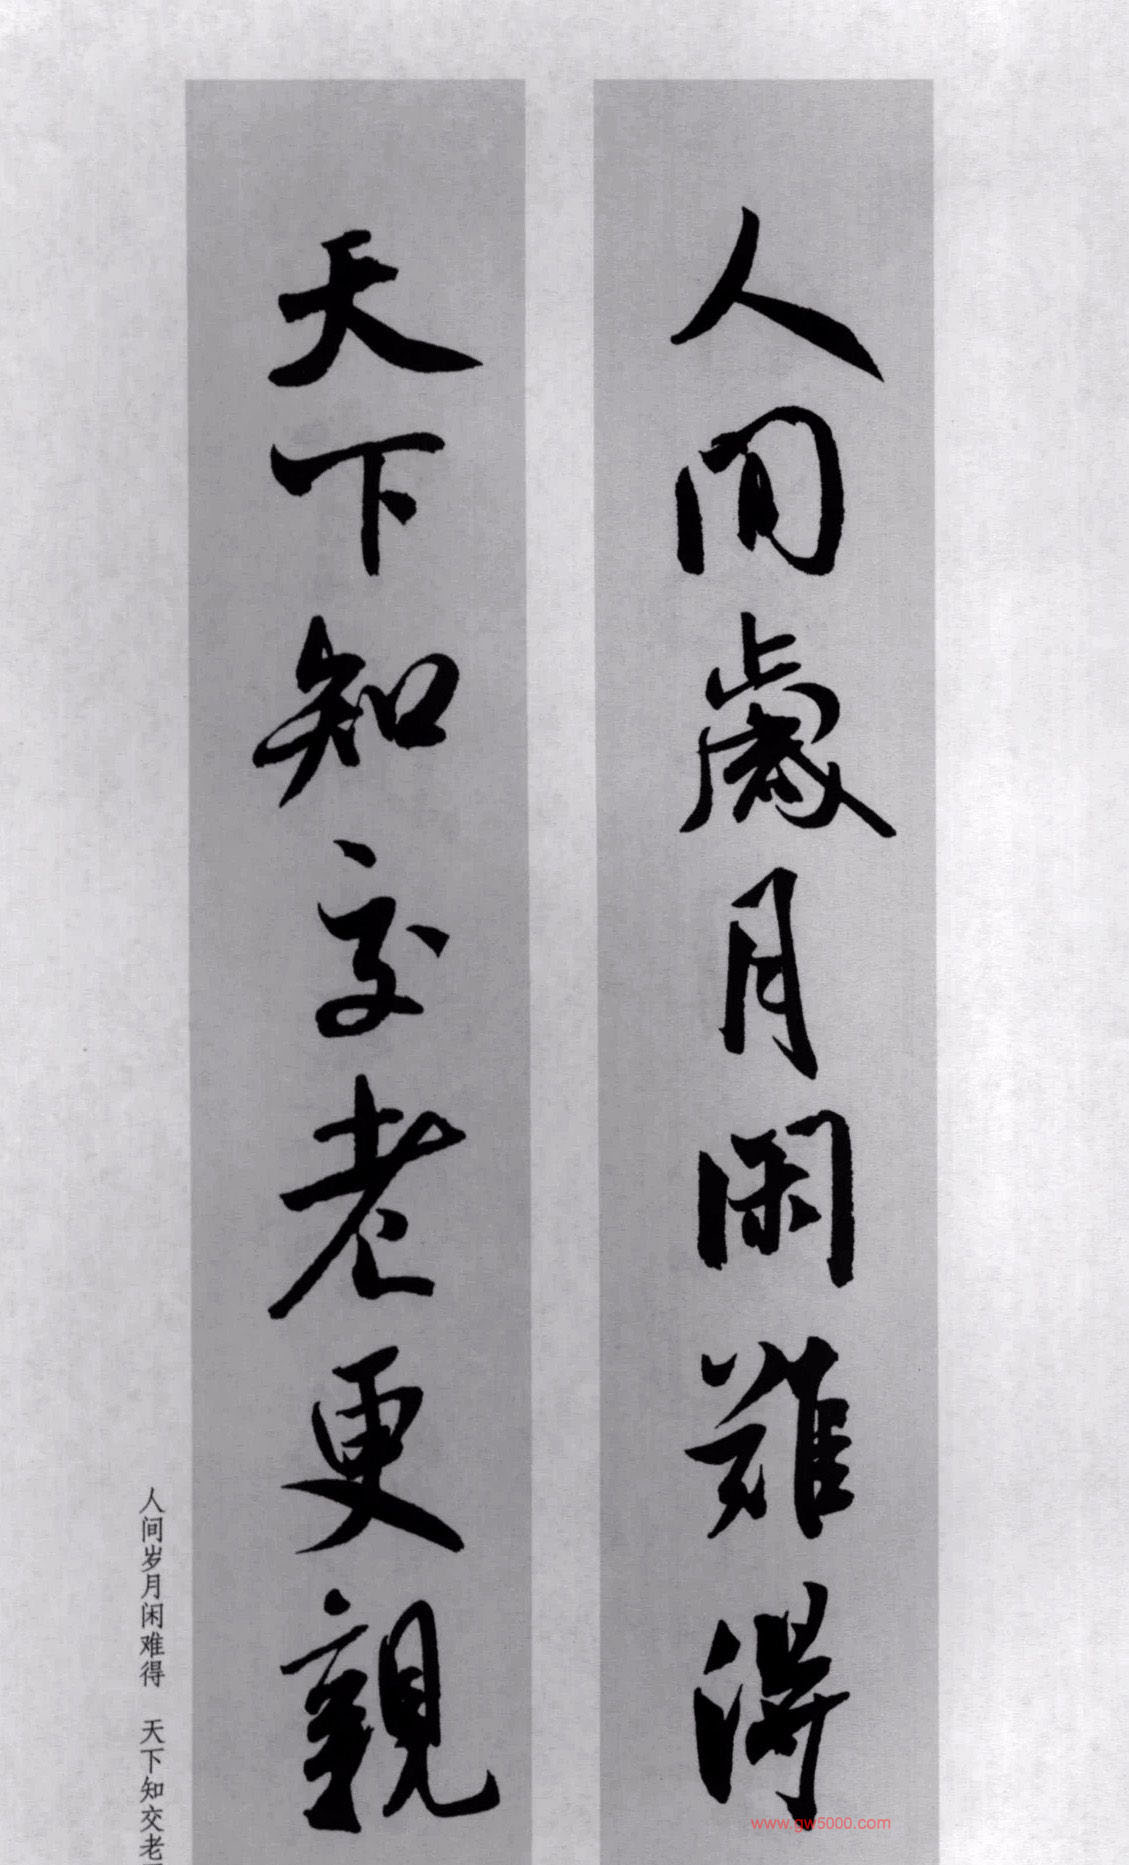 人間歲月閑難得
天下知交老更親
人间岁月闲难得 天下知交老
www.gw5000.com